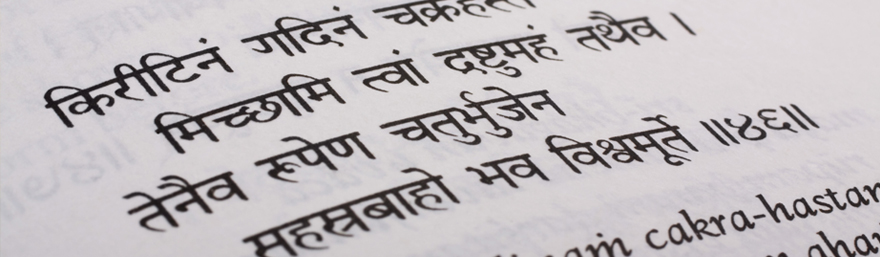 किरीटिनं गदिनं चक्रहस्त
मिच्छामि त्वां द्रष्टुमहं तथैव ।
तेनैव रूपेण चतुर्भुजेन
सहस्रबाहो भव विश्वमूर्ते ॥४६॥
cakra-hastam